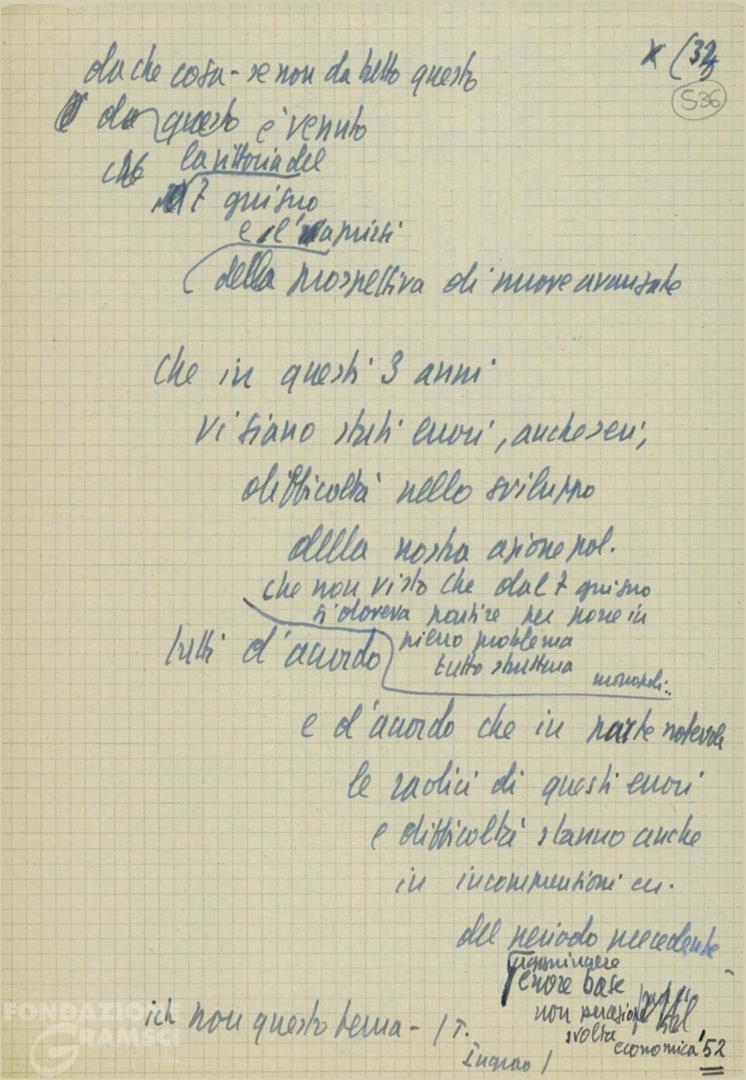 x (32
536
da che cosa - se non da tutto questo
da questo è venuto
che la vittoria del
7 giugno
e l'aprirsi
della prospettiva di nuove avanzate
che in questi 3 anni
vi siano stati errori, anche seri,
difficoltà nello sviluppo
della nostra azione pol.
che non visto che dal 7 giugno
si doveva partire per porre in
pieno problema
tutto struttura
monopoli..
tutti d'accordo
e d'accordo che in parte notevole
le radici di questi errori
e difficoltà stanno anche
in incomprensioni
del periodo precedente
errore base
non
svolta
economica '52
non questo tema - 1 T.
Ingrao 1
FONDAZIONE
GRAMSCI